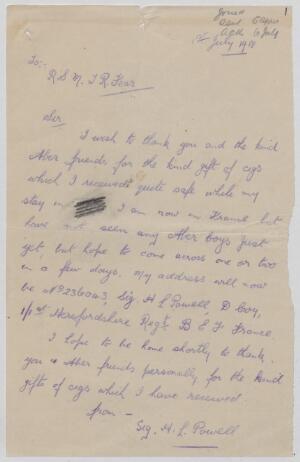 1
1st July 1918
To:-
R S M. T R. Fear
Sir
I wish to thank you and the kind
Aber friends for the kind gift of cigs
which I received quite safe while my
stay in
I am now in France but
have not seen any Aber boys just
yet, but hope to come across one or two
in a few days. My address will now
be No 236043, Sig. H L Powell, D Coy,
1/1st Herefordshire Regt. B E F France.
I hope to be home shortly to thank
you & Aber friends personally for the kind
gifts of cigs which I have received.
from:-
Sig. H. L. Powell